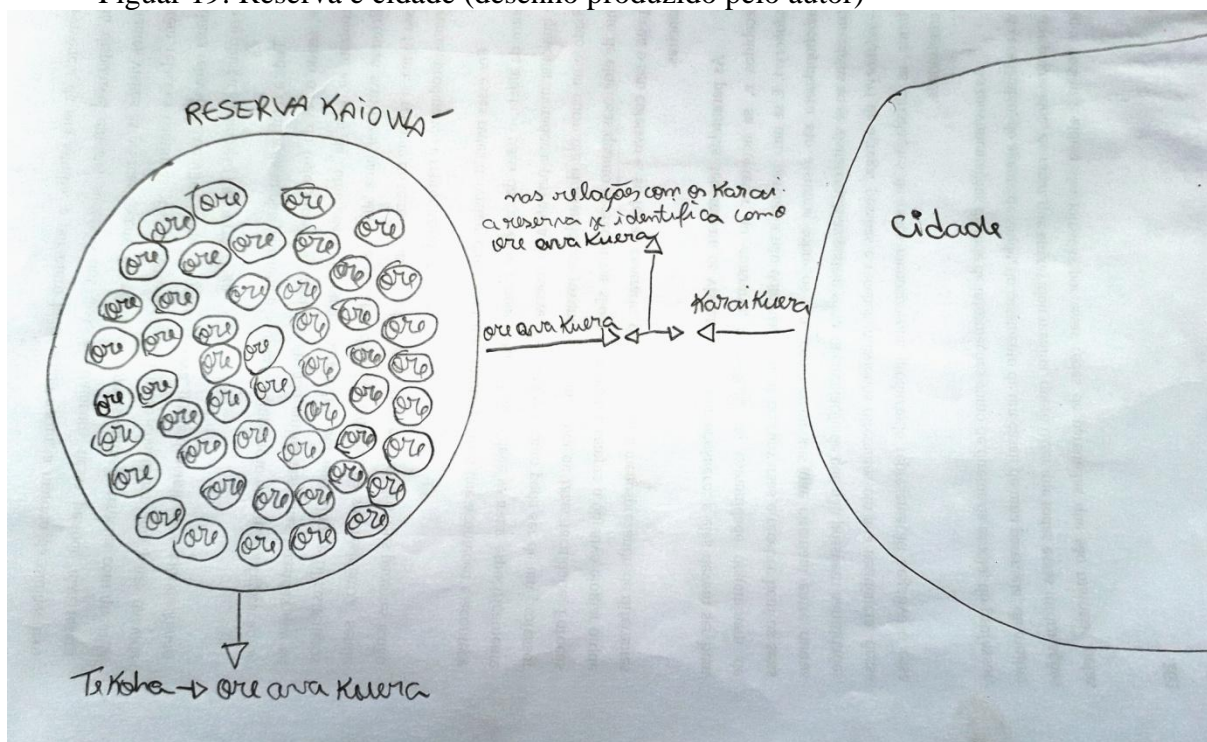 Figuar 19: Reserva e cidade (desenho produzido pelo autor)
RESERVA KAIOWA
ore ore
ore ore
ore ore
ore ore
ore ore
ore ore
ore ore
ore ore ore
ore ore ore
ore ore ore
ore ore ore
ore ore ore
ore ore ore
ore ore ore
ore ore ore
ore ore ore
ore ore ore
ore ore ore
ore ore ore
ore ore
nas relações com os Karai
a reserva se identifica como
ore ava Kuera
ore ava Kuera
Karai Kuera
Cidade
Tekoha → ore ava Kuera